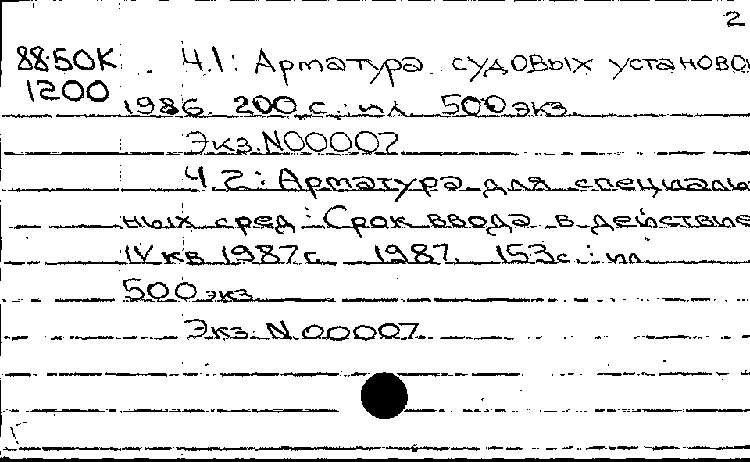 2
88-50К Ч.1: Арматура судовых установо
1200 1986. 200 с.: ил. 500 экз.
Экз. N00007
Ч.2: Арматура для специаль
ных сред: Срок ввода в действие
IV кв. 1987г. 1987. 153с.: ил.
500 экз.
Экз. N 00007